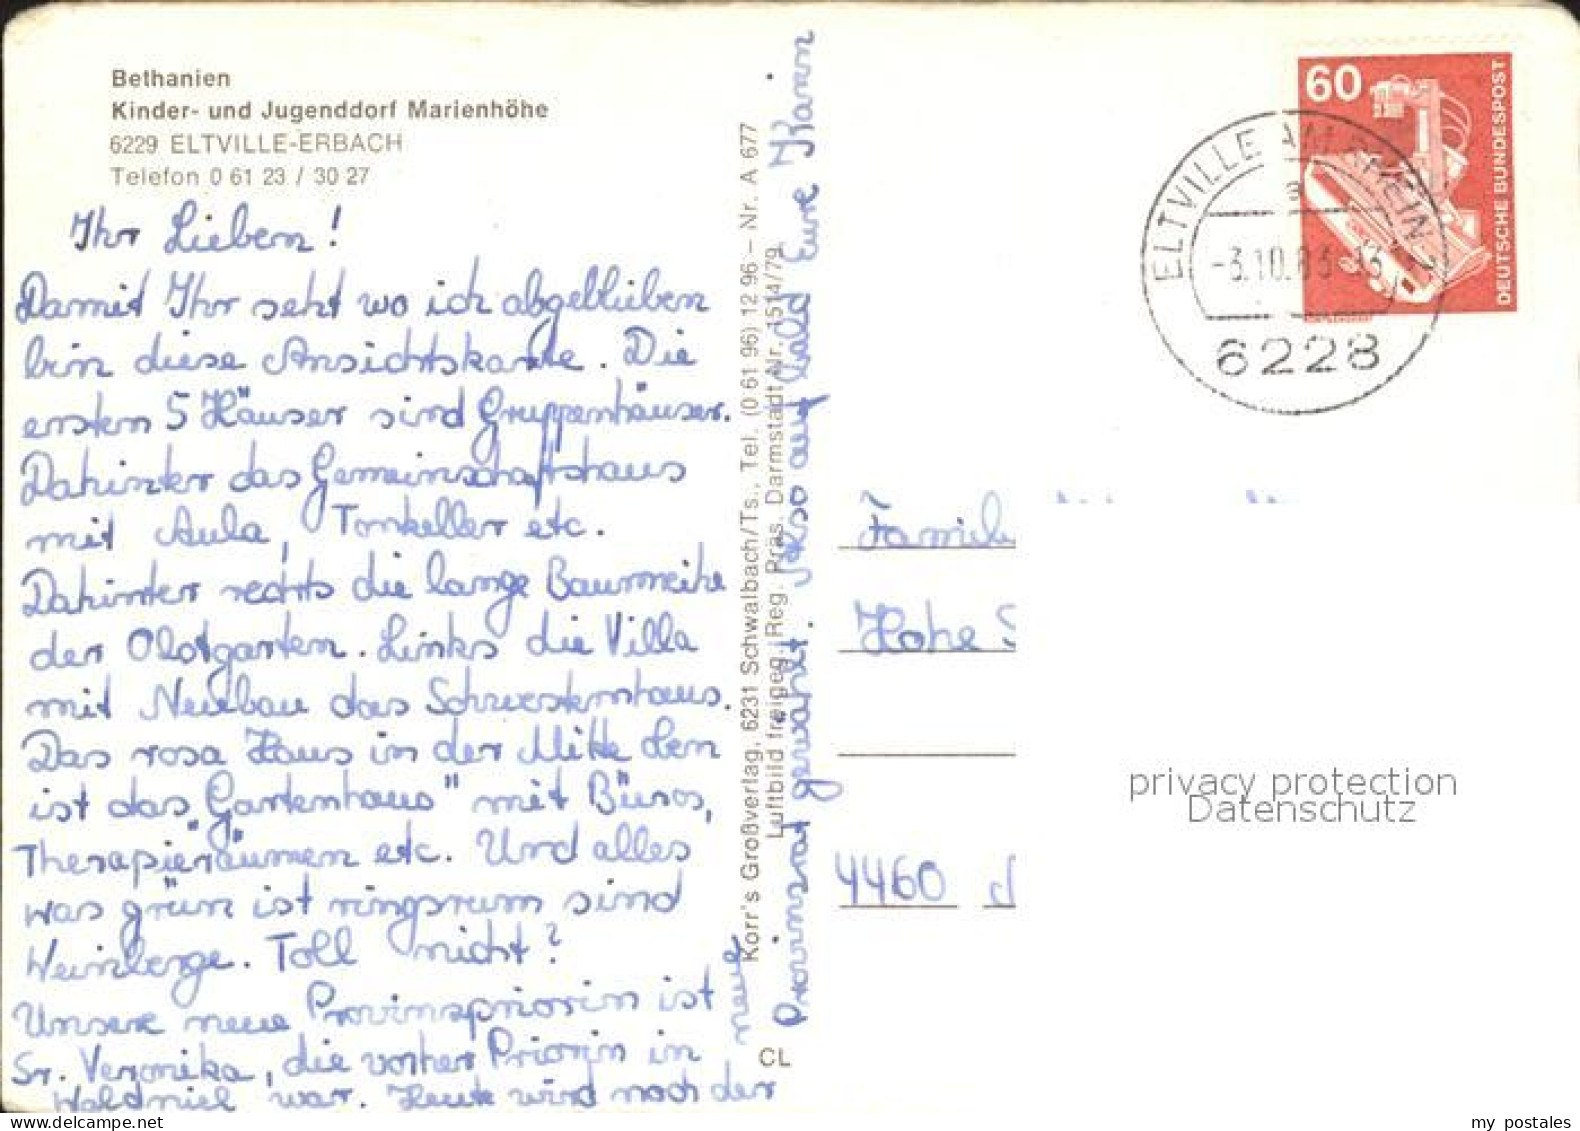 Bethanien
Kinder- und Jugenddorf Marienhöhe
6229 ELTVILLE-ERBACH
Telefon 0 61 23 / 30 27
Ihr Lieben!
Damit Ihr seht wo ich abgeblieben
bin diese Ansichtskarte. Die
ersten 5 Häuser sind Gruppenhäuser.
Dahinter das Gemeinschaftshaus
mit Aula, Tonkeller etc.
Dahinter rechts die lange Baumreihe
der Obstgarten. Links die Villa
mit Neubau das Schwesternhaus.
Das rosa Haus in der Mitte
ist das "Gartenhaus" mit Büros,
Therapieräumen etc. Und alles
was grün ist ringsrum sind
Weinberge. Toll nicht?
Unsere neue Provinspriorin ist
Sr. Veronika, die vorher Priorin in
Waldniel war. Heute wird noch der
neue
Provinsrat gewählt. Also auf bald Eure Karin
Korr's Großverlag, 6231 Schwalbach/Ts., Tel. (0 61 96) 12 96 – Nr. A 677
Luftbild freigeg. Reg. Präs. Darmstadt Nr. 1514/79
CL
60
DEUTSCHE BUNDESPOST
ELTVILLE AM RHEIN 1
a
-3.10.83-
6228
Hohe S
4460
privacy protection
Datenschutz
my postales